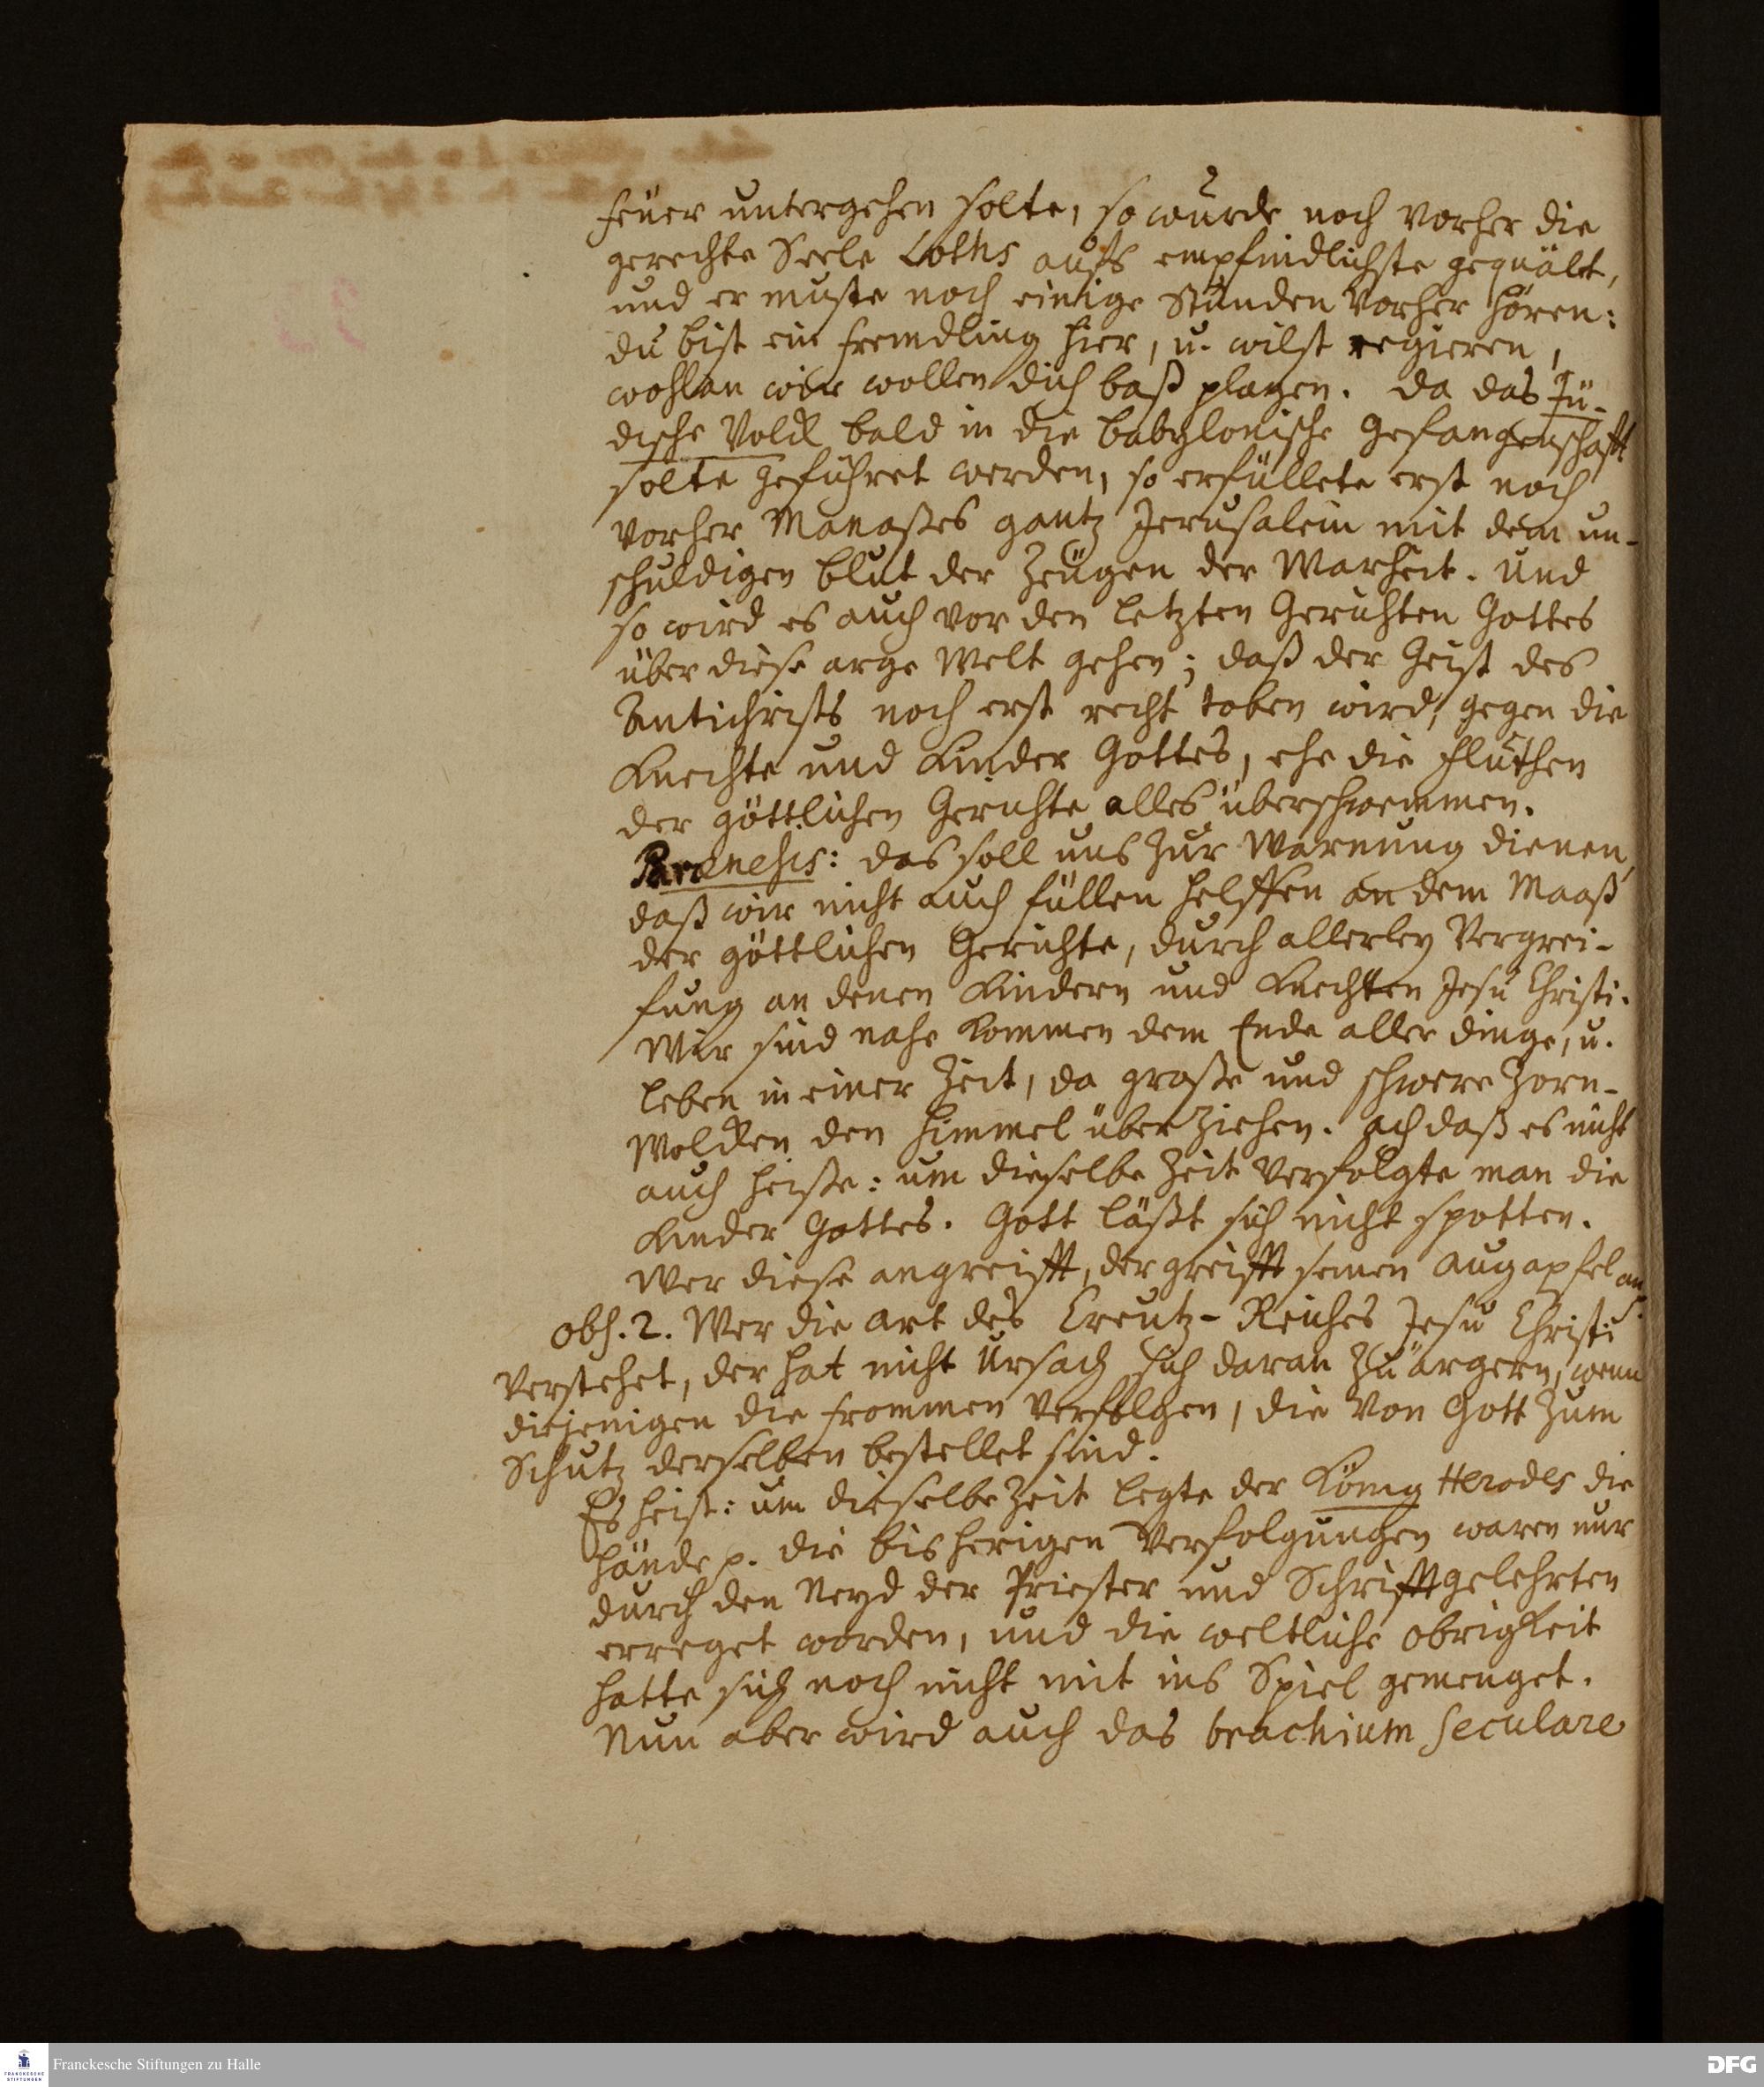 Feuer untergehen solte, so wurde noch vorher die
gerechte Seele Loths aufs empfindlichste gequält,
und er muste noch einige Stunden vorher hören:
du bist ein Fremdling hier, u. wilst regieren,
wohlan wir wollen dich baß plagen. Da das Jü-
dische Volck bald in die babylonische Gefangenschafft
solte geführet werden, so erfüllete erst noch
vorher Manaßes gantz Jerusalem mit dem un-
schuldigen Blut der Zeugen der Warheit. Und
so wird es auch vor den letzten Gerichten Gottes
über diese arge Welt gehen; daß der Geist des
Antichrists noch erst recht toben wird, gegen die
Knechte und Kinder Gottes, ehe die Fluthen
der göttlichen Gerichte alles überschwemmen.
Parænesis: das soll uns zur Warnung dienen,
daß wir nicht auch füllen helffen an dem Maaß
der göttlichen Gerichte, durch allerley Vergrei-
fung an denen Kindern und Knechten Jesu Christi.
Wir sind nahe kommen dem Ende aller dinge, u.
leben in einer Zeit, da große und schwere Zorn-
Wolcken den Himmel überziehen. Ach daß es nicht
auch heiße: um dieselbe Zeit verfolgte man die
Kinder Gottes. Gott läßt sich nicht spotten.
Wer diese angreifft, der greifft seinen Augapfel an.
Obs. 2. Wer die Art des Creutz-Reiches Jesu Christi
verstehet, der hat nicht Ursach sich daran zu ärgern, wenn
diejenigen die Frommen verfolgen, die von Gott zum
Schutz derselben bestellet sind.
Es heist: um dieselbe Zeit legte der König Herodes die
Hände p. die bisherigen Verfolgungen waren nur
durch den Neyd der Priester und Schrifftgelehrten
erreget worden, und die weltliche Obrigkeit
hatte sich noch nicht mit ins Spiel gemenget.
Nun aber wird auch das brachium seculare
Franckesche Stiftungen zu Halle
FRANCKESCHE
STIFTUNGEN
DFG